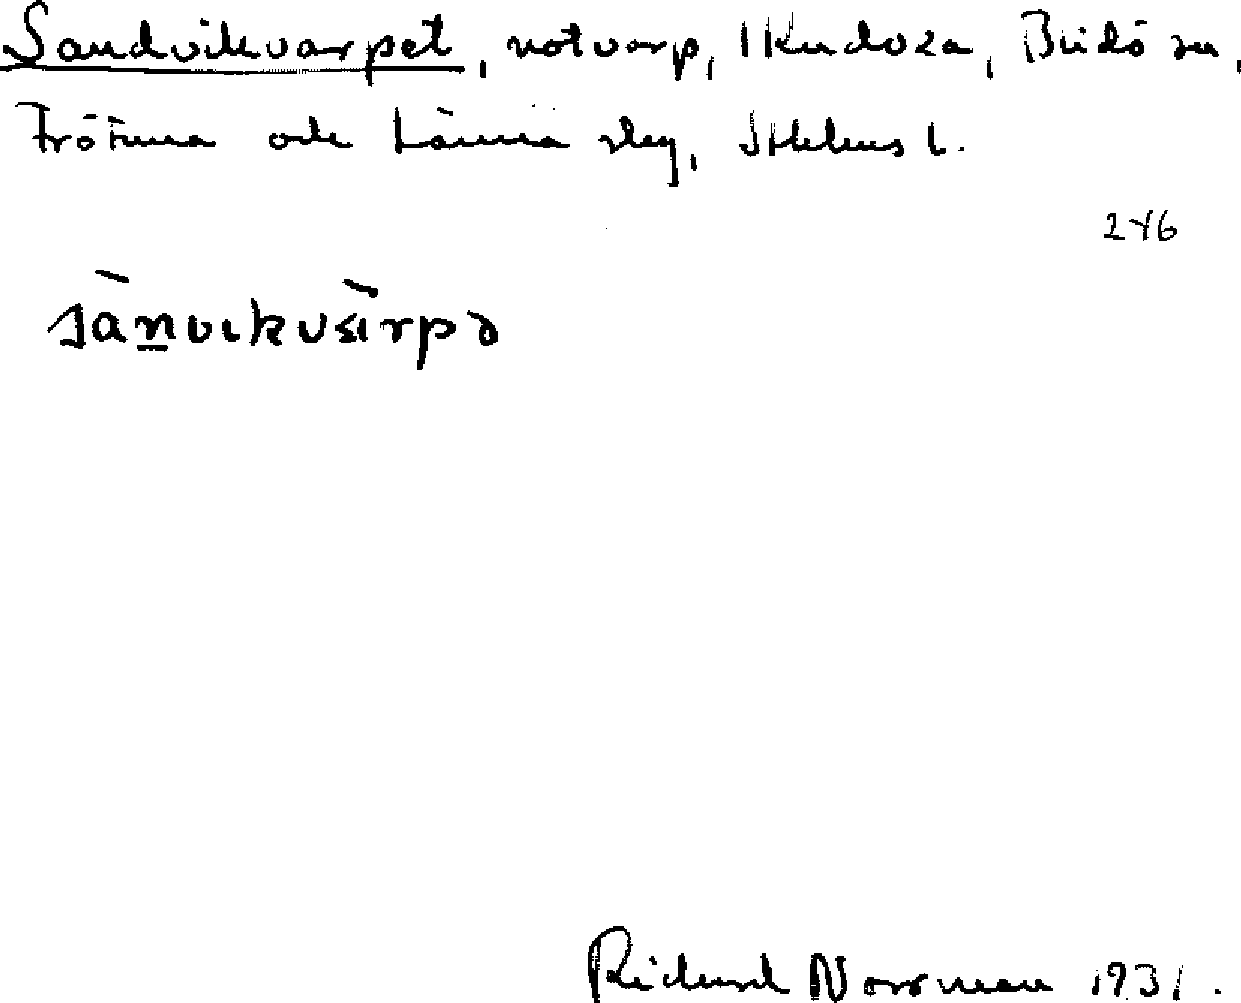 Sandvikvarpet, notvarp, Kudoxa, Blidö sn,
Frötuna och Länna skg, Sthlms l.
246
sànvikvàrpə
Richard Norrman 1931.